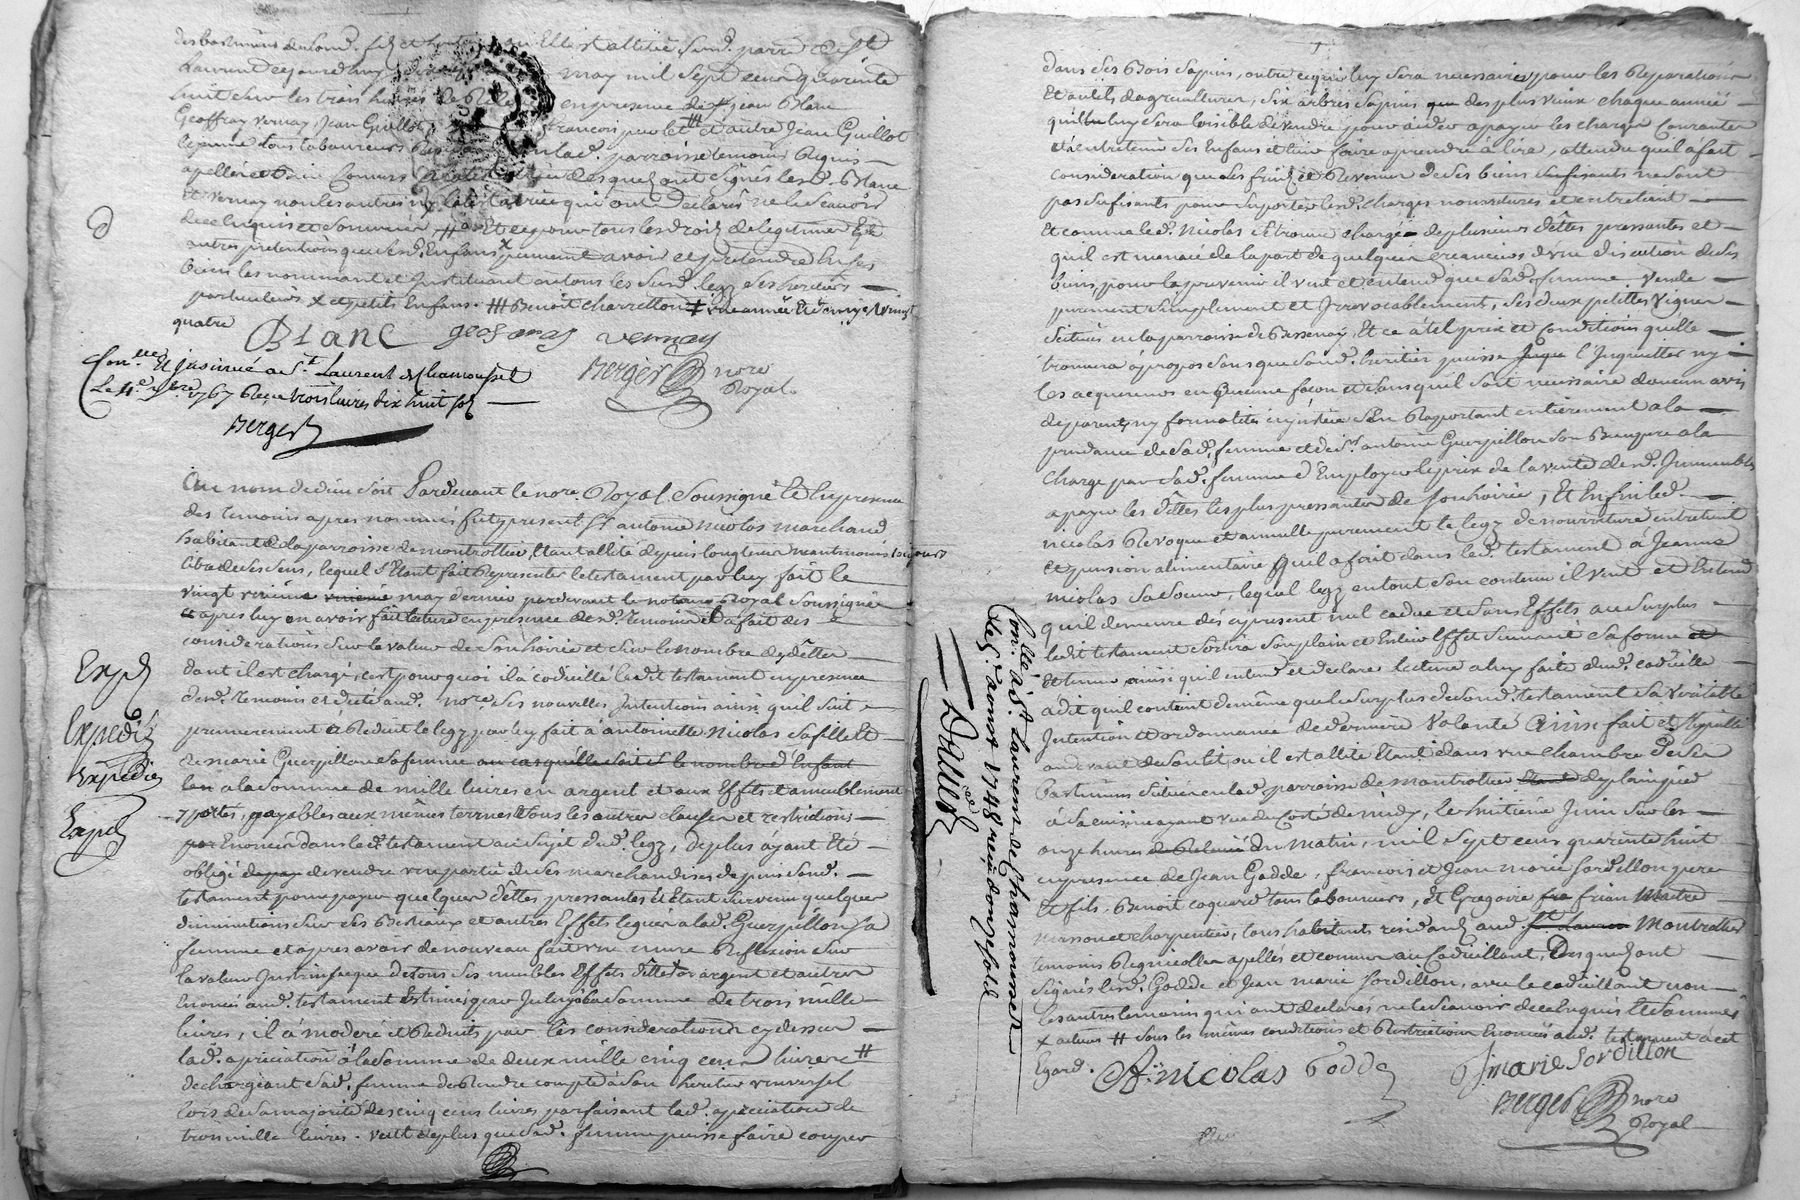 Laurent cejourdhuy may mil sept cens quarante
huit sur les trois heures de Relevée en presence de jean Blanc
Geoffray vernay, Jean Guillot, francois et autre Jean Guillot
lejeune tous laboureurs parroisse temoins Requis
appellés et
et vernay non les autres ny la testatrice qui ont declarés ne le scavoir
de ce Enquis et Sommés Et ce pour tous les droits de legitime Et
autres pretentions que lesd. Enfans x peuvent avoir et pretendre En ses
biens les nommant et Instituant en tous les susd. legz ses heritiers
particuliers x et petits Enfans. ## Benoit Charretton
quatre
Blanc geofray vernay
Berger nore
Royal
Con.lle Et jnsinué a St. Laurent de Chamousset
Le 1767 Reçu trois livres dix huit sols
Berger
Au nom de dieu soit Pardevant le nore. Royal Soussigné Et En presence
des temoins apres nommés fut present sr. antoine nicolas marchand
habitant de la parroisse de montrottier, Etant allité depuis longtems neantmoins toujours
libre de ses sens, lequel s'Etant fait Representer le testament par luy fait le
vingt may dernier pardevant le notaire Royal Soussigné
et apres luy en avoir fait lecture en presence desd. temoins Et a fait des
considerations sur la valeur de son hoirie et sur le nombre de dettes
dont il est chargé, c'est pourquoi il a codicillé led.t testament en presence
desd. temoins et dicté aud. nore. ses nouvelles Intentions ainsi qu'il suit
premierement a Reduit le legz par luy fait à antoinette Nicolas sa fille Et
de marie Guerpillon sa femme au cas quelle soit le nombre d'Enfant
a la somme de mille livres en argent et aux Effets et ameublement
y portés, payables aux mêmes termes Et sous les autres clauses et restrictions
Enoncés dans led.t testament au sujet dud. legz, de plus ayant Eté
obligé de vendre une partie de ses marchandises depuis sond.
testament pour payer quelques dêttes pressantes Et Etant survenu quelques
diminutions sur ses Bestiaux et autres Effets legués a lad. Guerpillon sa
femme et apres avoir de nouveau fait une mure Reflexion sur
la valeur Intrinseque de tous ses meubles Effets dêttes argent et autres
Enoncés aud. testament Estimés par luy a la somme de trois mille
livres, il a moderé et Reduits par les considerations cy dessus
lad. apreciation à la somme de deux mille cinq cens livres ##
dechargeant sad. femme de Rendre compte à son heritier universel
lors de sa majorité des cinq cens livres parfaisant lad. apreciation de
trois mille livres. veut de plus que sad. femme puisse faire couper
Expd
Expedié
Expediée
Expd
dans ses Bois sapins, outre ce qui luy sera necessaire pour les Reparations
Et outils d'agriculture, six arbres sapins des plus vieux chaque année
qu'il luy sera loisible de vendre pour aider a payer les charges Courantes
et à entretenir ses Enfans et leur faire aprendre à lire, attendu quel a fait
consideration que les fruits et Revenus de ses biens ne sont
pas sufisants pour suporter lesd. charges nourritures et entretient
Et comme led. Nicolas se trouve chargé de plusieurs dêttes pressantes et
qu'il est menacé de la part de quelques creanciers d'une discution de ses
biens, pour la prevenir il veut et entend que sad. femme vende
purement simplement et Irrevocablement, ses deux petittes vignes
scituées en la parroisse de Bessenay, Et ce à tel prix et Conditions quelle
trouvera à propos sans que sond. heritier puisse l'Inquietter ny
les acquereurs en aucune façon et sans qu'il soit necessaire d'aucun avis
de parents ny formalités en justice s'en Raportant entièrement a la
prudance de sad. femme et de sr. antoine Guerpillon son Beaupere a la
charge par sad. femme d'Employer le prix de la vente desd. Immeubles
a payer les dêttes les plus pressantes de son hoirie, Et Enfin led.
nicolas Revoque et annulle purement le legz de nourriture entretient
et pension alimentaire quil a fait dans led. testament à Jeanne
Nicolas sa soeur, lequel legz en tout son contenu il veut et Entend
qu'il demeure dès à present nul cadue et sans Effets au surplus
ledit testament sortira son plain et Entier Effet suivant sa forme et
Et teneur ainsi qu'il entend et declare lecture a luy faite dud. codicille
a dit qu'il contient de même que le surplus de sond. testament sa véritable
Intention et ordonnance de derniere volonté Ainsi fait et
au devant de son lit, ou il est allité Etant dans une chambre de ses
Bastimens scitués en lad. parroisse de montrottier de plain pied
à sa cuisine ayant vue du coté de midy, le huitième Juin sur les
onze heures du matin, mil sept cens quarante huit
en presence de Jean Godde, francois et Jean marie Sordillon pere
Et fils, Benoit coquard tous laboureurs, et Gregoire frian Maitre
masson et charpentier, tous habitants residants aud. Montrottier
temoins Requis et apellés et connus au Codicillant, Desquels ont
signés lesd. Godde et Jean marie Sordillon, avec le codicillant non
les autres temoins qui ont declarés ne le scavoir de ce Enquis Et Sommés
x autres ## sous les mêmes conditions et Restrictions Enoncées aud. testament à cet
Egard. A. nicolas Godde J marie Sordillon
Berger nore
Royal
Con.lle à St. Laurent de Chamousset
Le aoust 1748 reçu douze sols